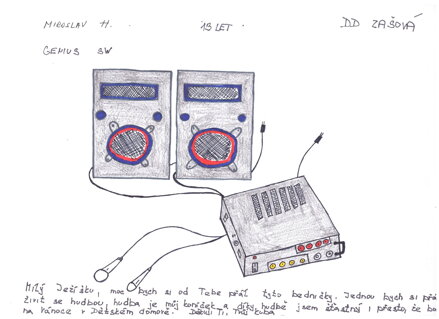 MIROSLAV H. 13 LET DD ZAŠOVÁ
GENIUS SW
Milý Ježíšku, moc bych si od Tebe přál tyto bedničky. Jednou bych si přá
živit se hudbou, hudba je můj koníček a díky hudbě jsem šťastný i přesto, že bo
na vánoce v Dětském domově. Děkuji Ti, Tvůj Kuba.